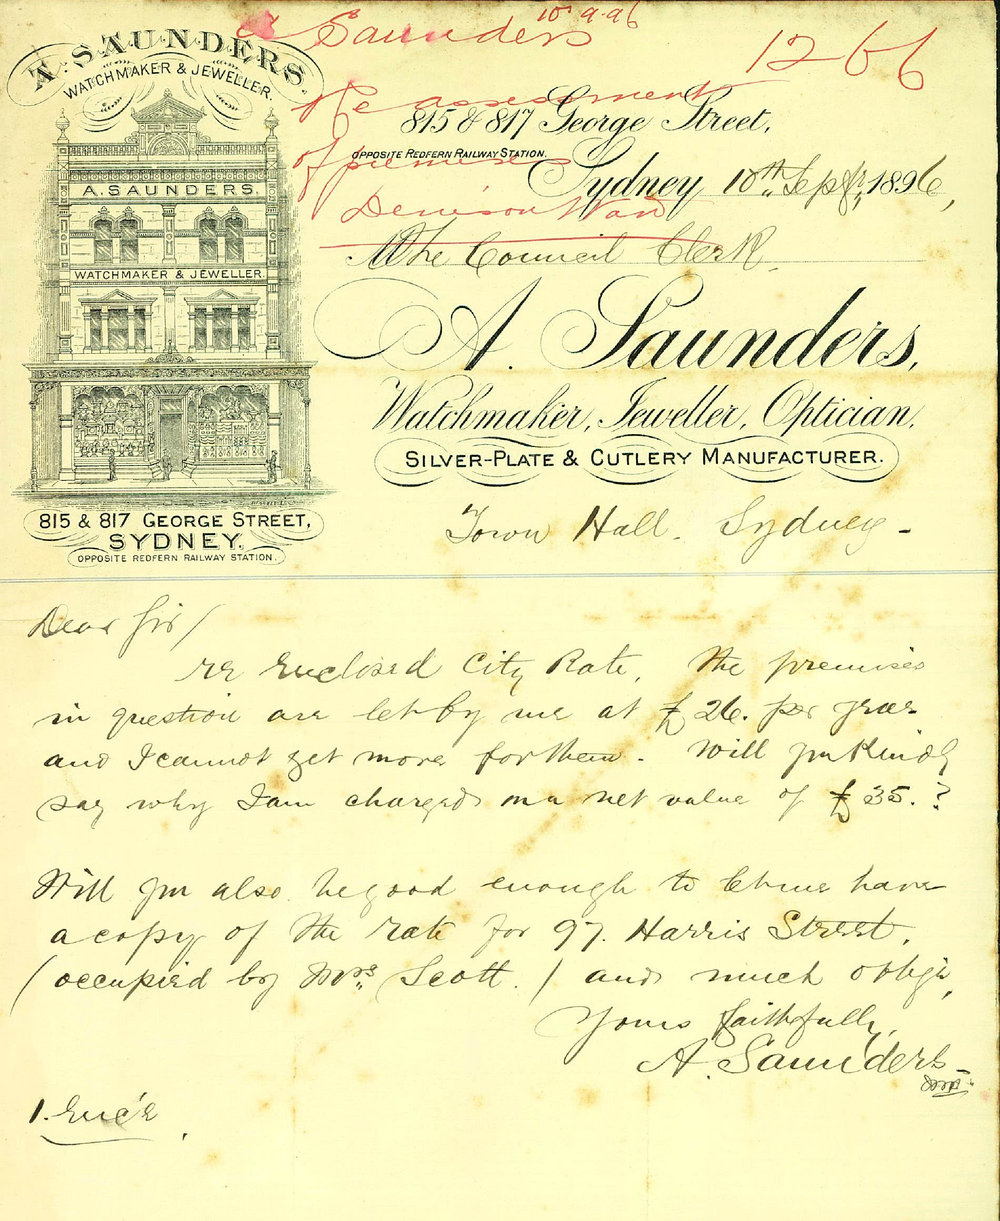 A. SAUNDERS.
WATCHMAKER & JEWELLER.
A. SAUNDERS.
WATCHMAKER & JEWELLER.
815 & 817 GEORGE STREET,
SYDNEY.
OPPOSITE REDFERN RAILWAY STATION.
A Saunders 10.9.96
1266
re assessment
of premises
Denison Ward
815 & 817 George Street,
OPPOSITE REDFERN RAILWAY STATION.
Sydney 10th Sepbr. 1896,
The Council Clerk
A. Saunders,
Watchmaker, Jeweller, Optician,
SILVER-PLATE & CUTLERY MANUFACTURER.
Town Hall. Sydney -
Dear Sir/
re Enclosed City Rate, The premises
in question are let by me at £26. per year
and I cannot get more for them. Will you Kindly
say why I am charged on a net value of £35.?
Will you also be good enough to let me have
a copy of the rate for 97. Harris Street,
(occupied by Mrs. Scott.) and much oblige,
Yours faithfully,
A. Saunders-
1. Enc'e